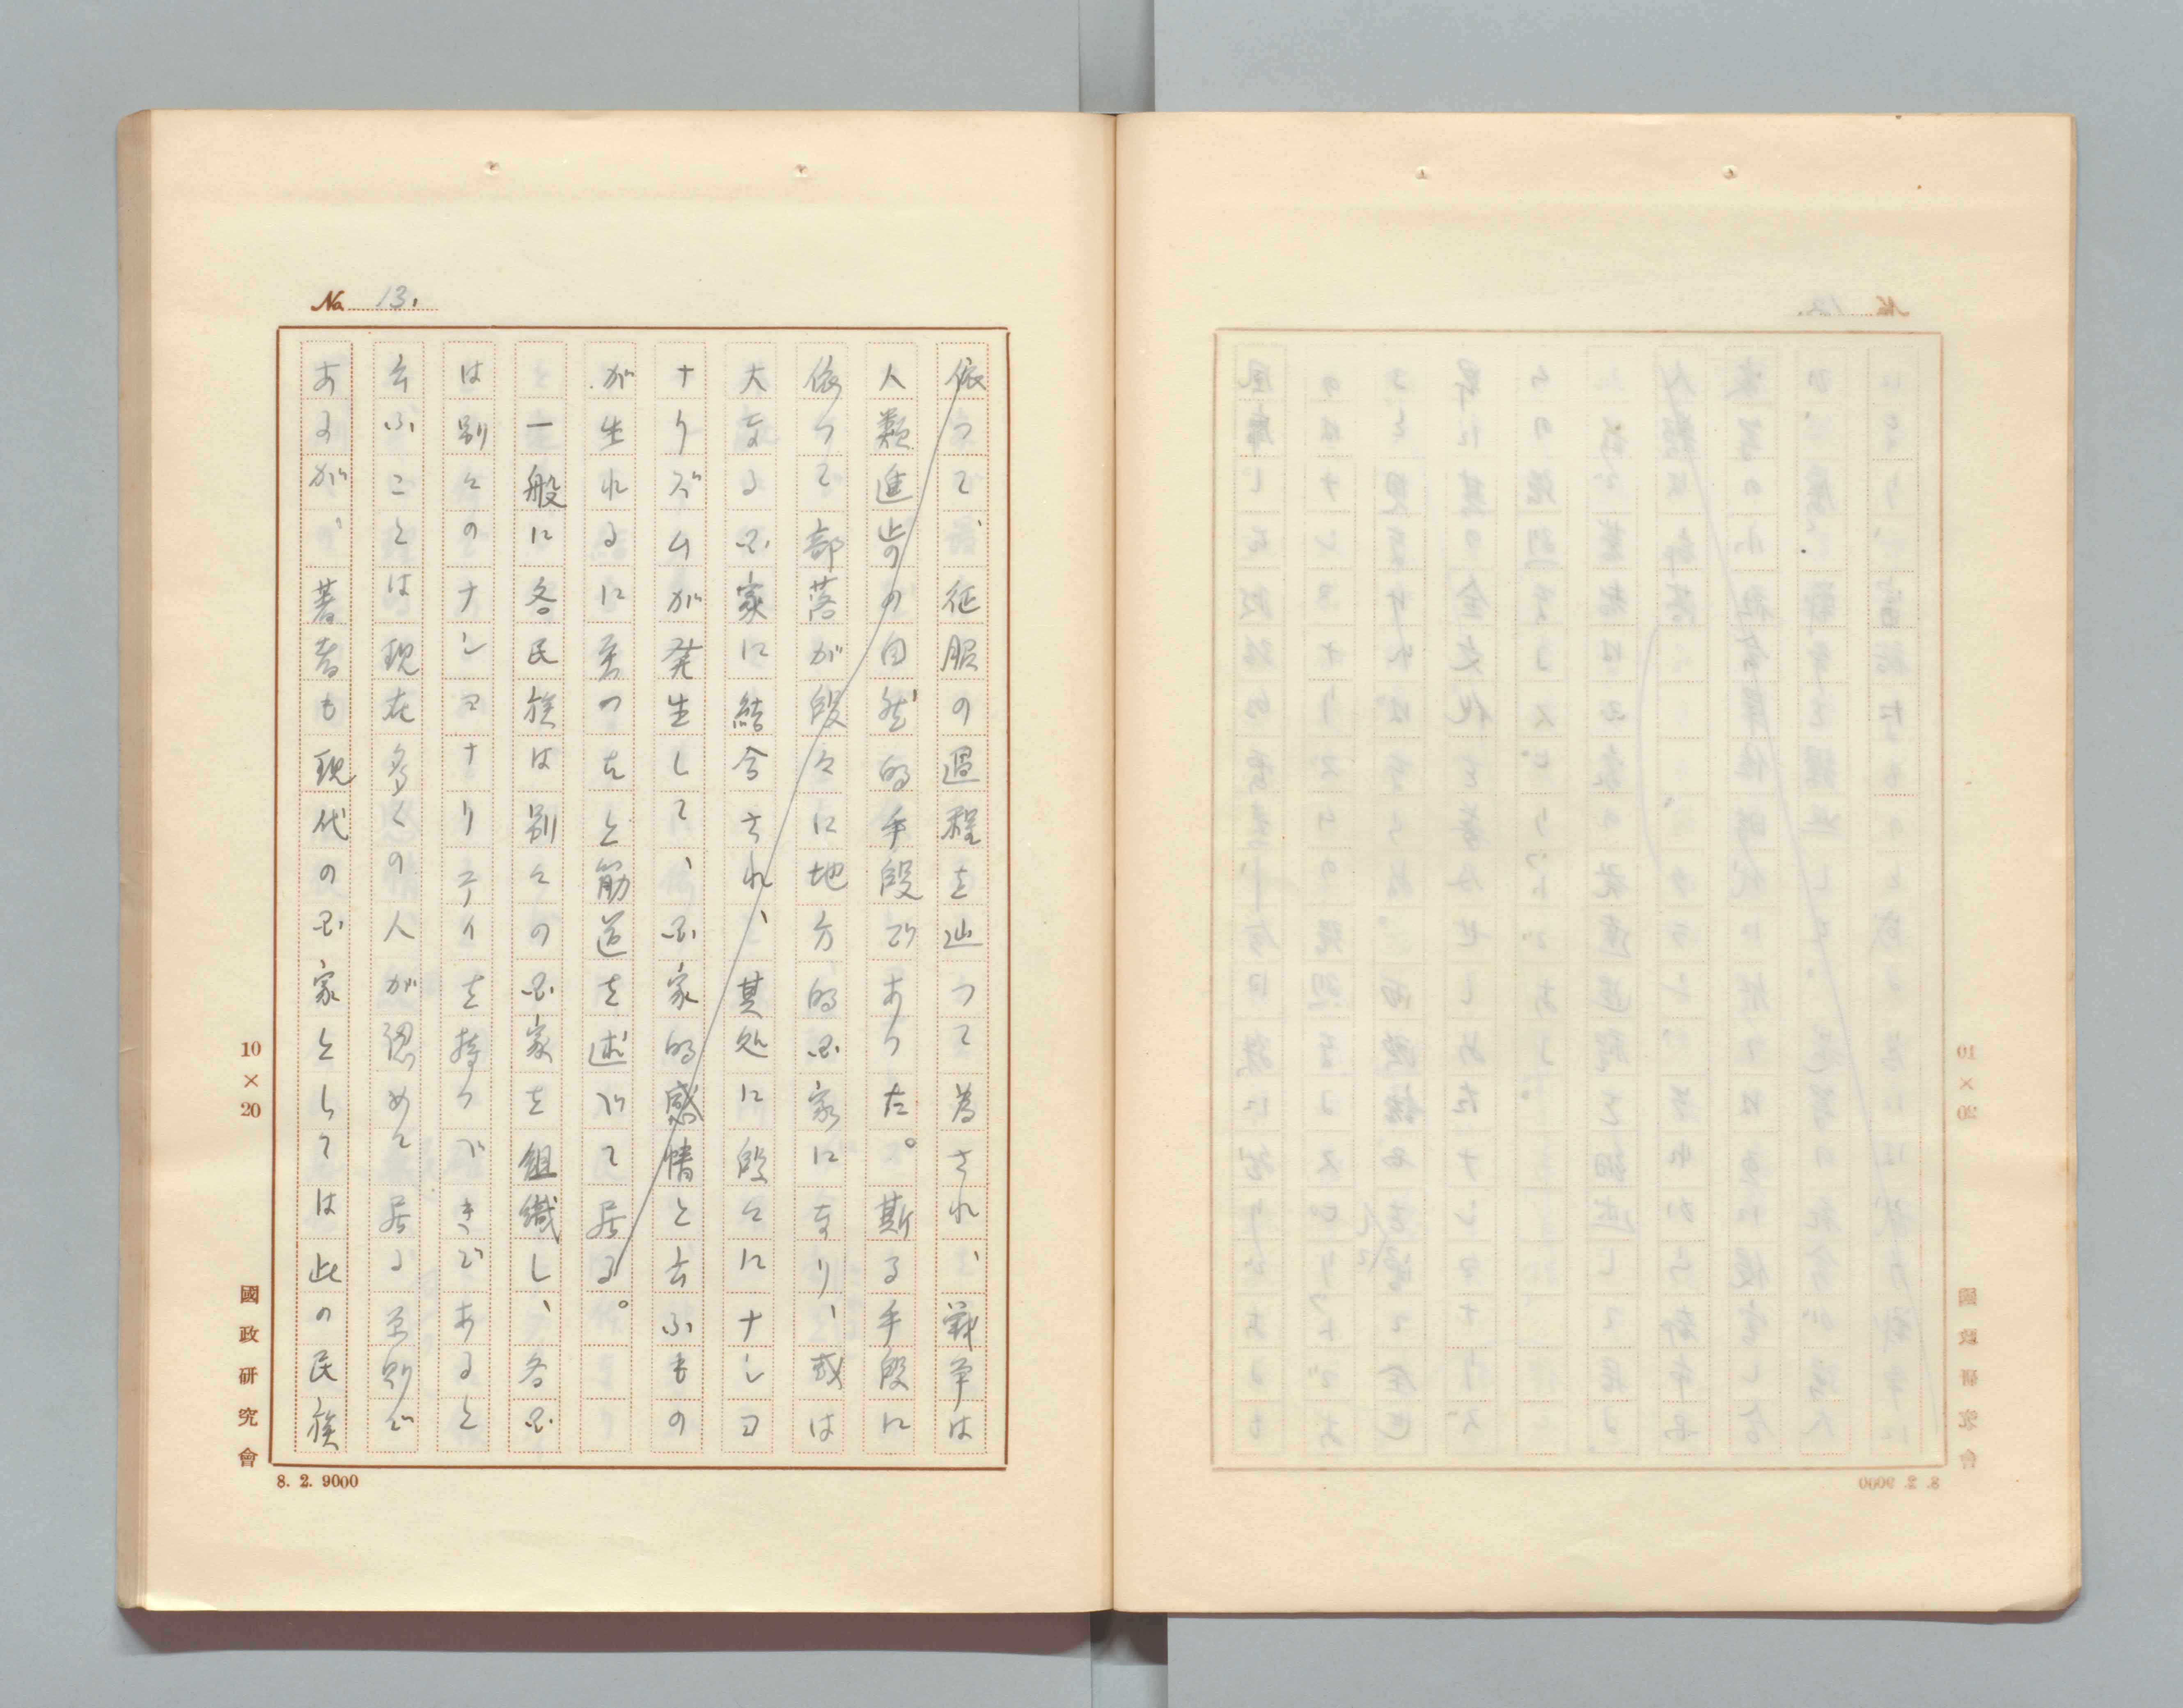 No. 13.
依つて、征服の過程を辿つて為され、戦争は
人類進歩の自然的手段であつた。斯る手段に
依つて部落が段々に地方的国家になり、或は
大なる国家に結合され、其処に段々にナショ
ナリズムが発生して、国家的感情と云ふもの
が生れるに至つたと筋道を述べて居る。
一般に各民族は別々の国家を組織し、各国
は別々のナショナリティを持つべきであると
云ふことは現在多くの人が認めて居る原則で
あるが、著者も現代の国家としては此の民族
10×20
國政研究會
8. 2. 9000